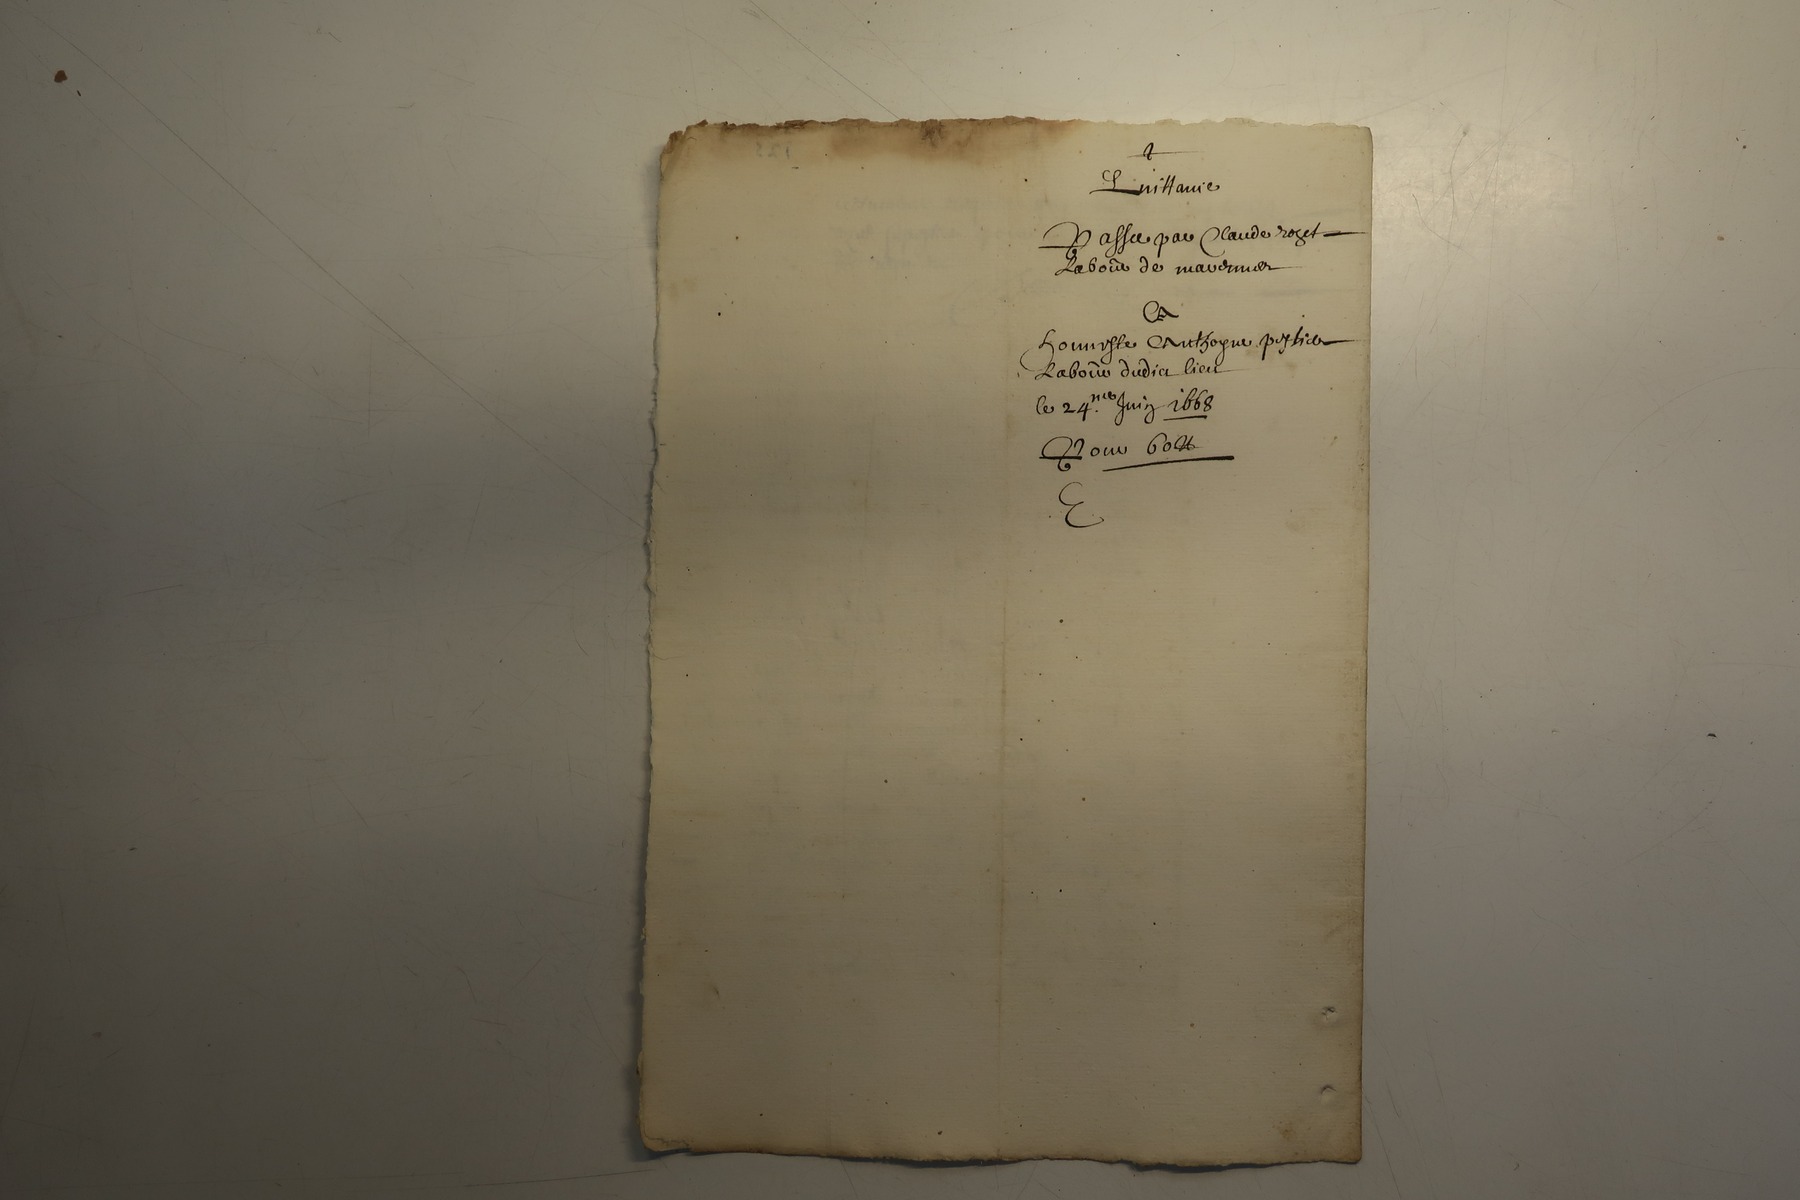 Quittance
Passée par Claude roget
Laboūr de mavernier
A
honneste Anthoyne peytier
Laboūr dudict lieu
le 24.me Juin 1668
Pour 60 ₶